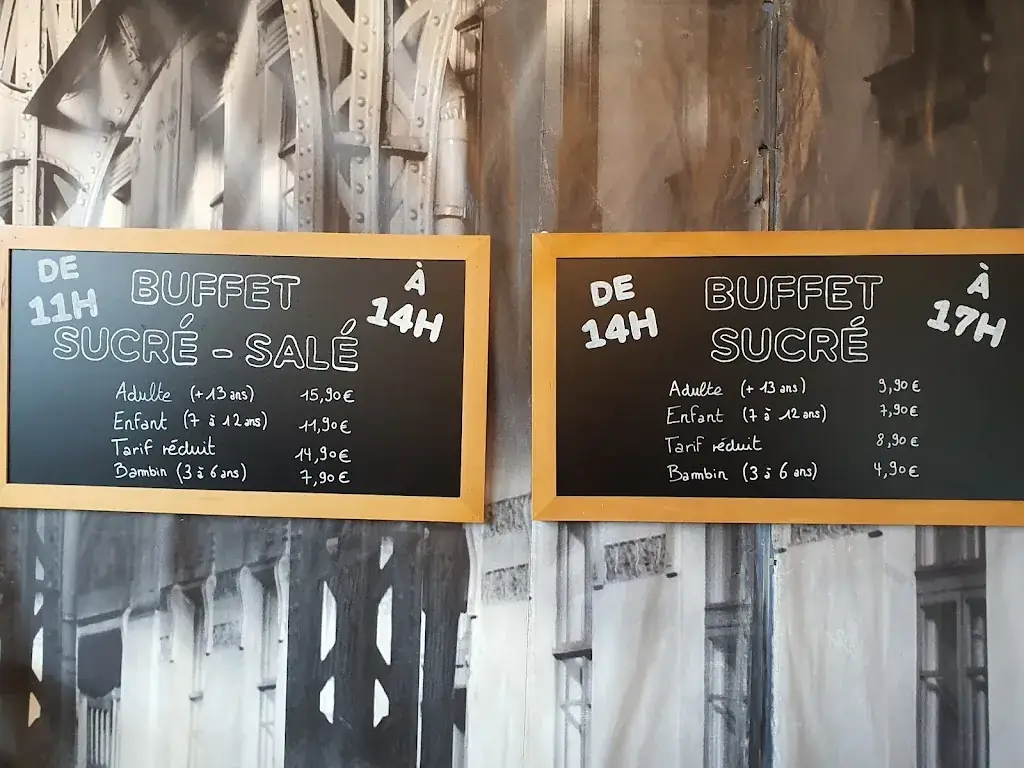 DE
11H
BUFFET
SUCRÉ - SALÉ
À
14H
Adulte (+13 ans) 15,90€
Enfant (7 à 12 ans) 11,90€
Tarif réduit 14,90€
Bambin (3 à 6 ans) 7,90€
DE
14H
BUFFET
SUCRÉ
À
17H
Adulte (+ 13 ans) 9,90€
Enfant (7 à 12 ans) 7,90€
Tarif réduit 8,90€
Bambin (3 à 6 ans) 4,90€